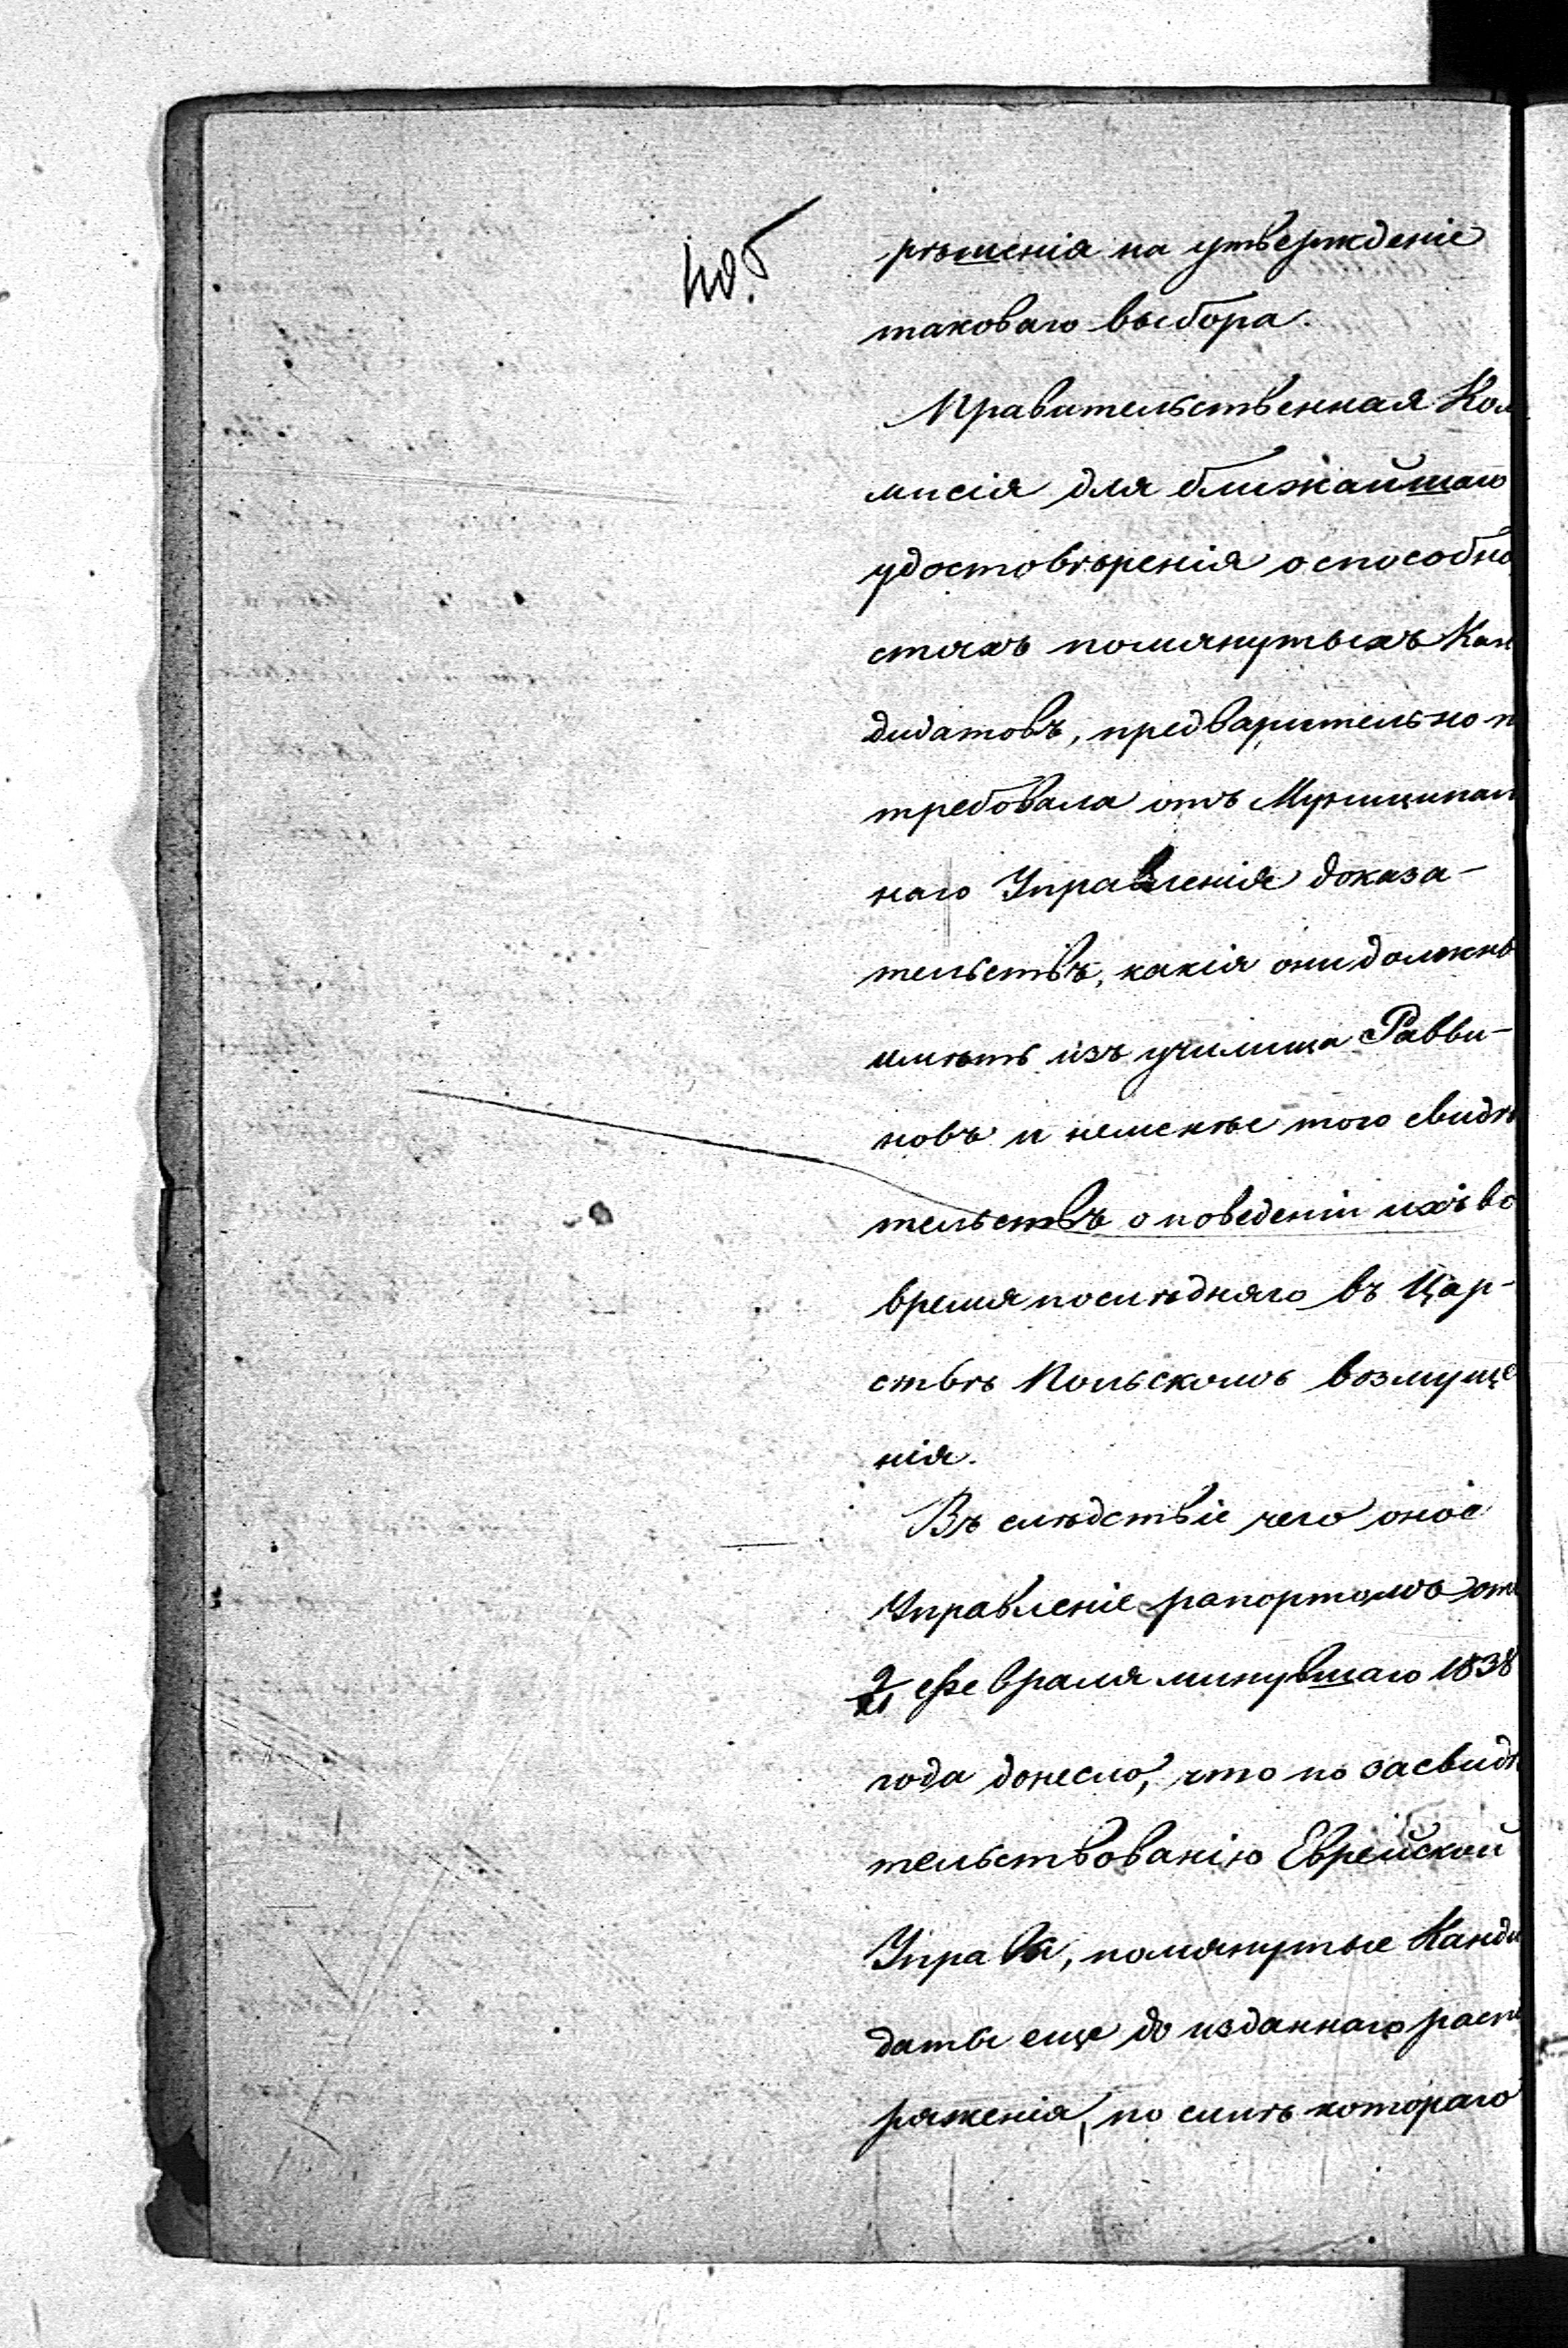 рѣшенія на утвержденіе
таковаго выбора.
Правительственная Ком
мисія для ближайшаго
удостовѣренія о способно
стяхъ помянутыхъ Кан
дидатовъ, предварительно п
требовала отъ Муниципал
наго Управленія доказа-
тельствъ, какія они должны
имѣть изъ училища Равви-
новъ и неменѣе того свидѣ
тельствъ о поведеніи ихъ во
время послѣдняго въ Цар-
ствѣ Польскомъ возмуще
нія.
Въ слѣдствіе чего оное
Управленіе рапортомъ отъ
9/21 Февраля минувшаго 1838
года донесло, что по засвидѣ
тельствованію Еврейской
Управы, помянутые Канди
даты еще до изданнаго расп
ряженія, по силѣ котораго